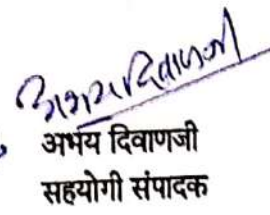 अभय दिवाणजी
अभय दिवाणजी
सहयोगी संपादक